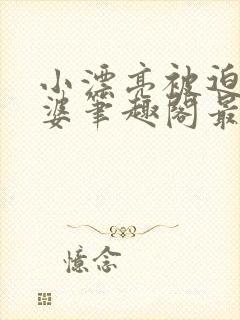 小漂亮被迫
婆笔趣阁最
憶念